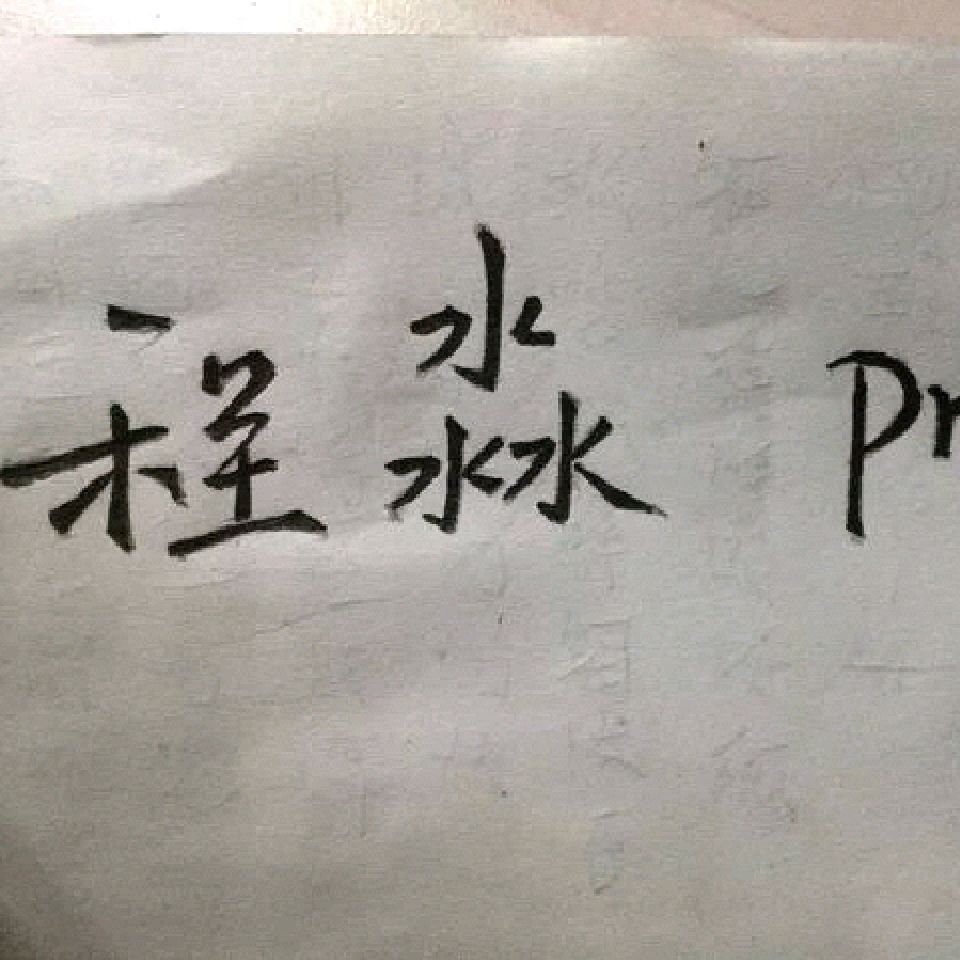 程淼 Pr